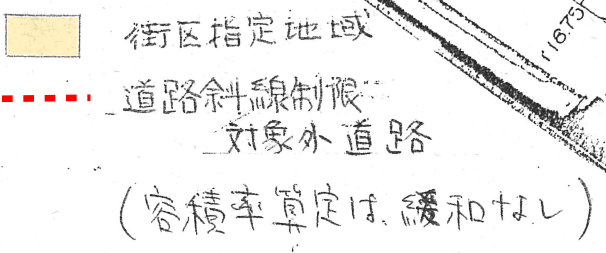 街区指定地域
道路斜線制限
対象外道路
(容積率算定は、緩和なし)
116.75